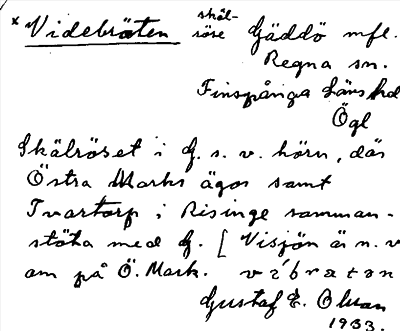 x Videbråten skäl-
röse Gäddö mfl.
Regna sn.
Finspånga läns hd
Ögl
Skälröset i G. s. v. hörn, där
Östra Marks ägor samt
Tvartorp i Risinge samman-
stöta med G. [ Visjön är n. v
om på Ö. Mark.
Gustaf E. Olsson
1933.